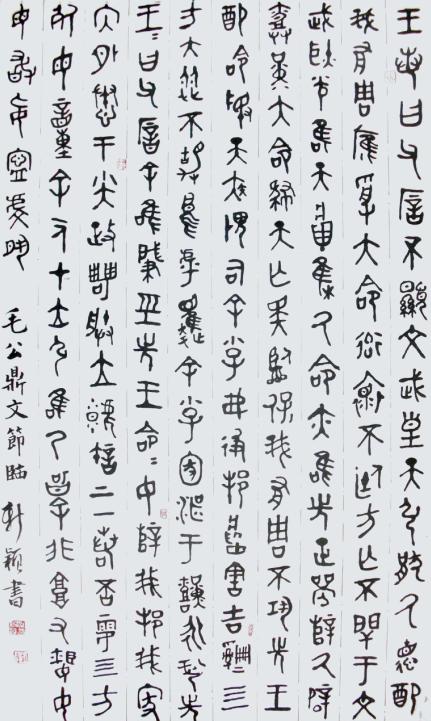 王若曰父厝不顯文武皇天弘猒氒德配
我有周雁受大命率褱不廷方亡不閈于文
武耿光唯天將集氒命亦唯先正辥氒辟
堇大命肆天亡斁臨保我有周不巩先王
配命敃天疾畏司余小子弗彶邦將害吉四
方大從不靜烏虖趯余小子圂湛于艱永巩先
王王曰父厝今余唯肇巠先王命命女辥我邦我家
內外憃于小大政朕立虩許上下若否雩四方
死母童余一人才立弘唯乃智余非庸又昏女
母敢妄寧虔夙夕
毛公鼎文節臨 穎書